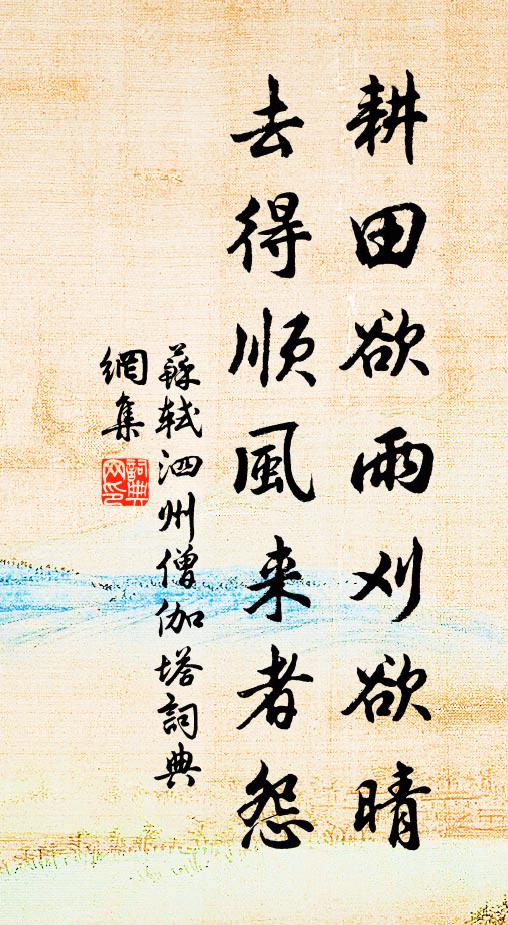 耕田欲雨刈欲晴
去得順風来者怨
蘇軾泗州僧伽塔詞典
網集
詞典
网印